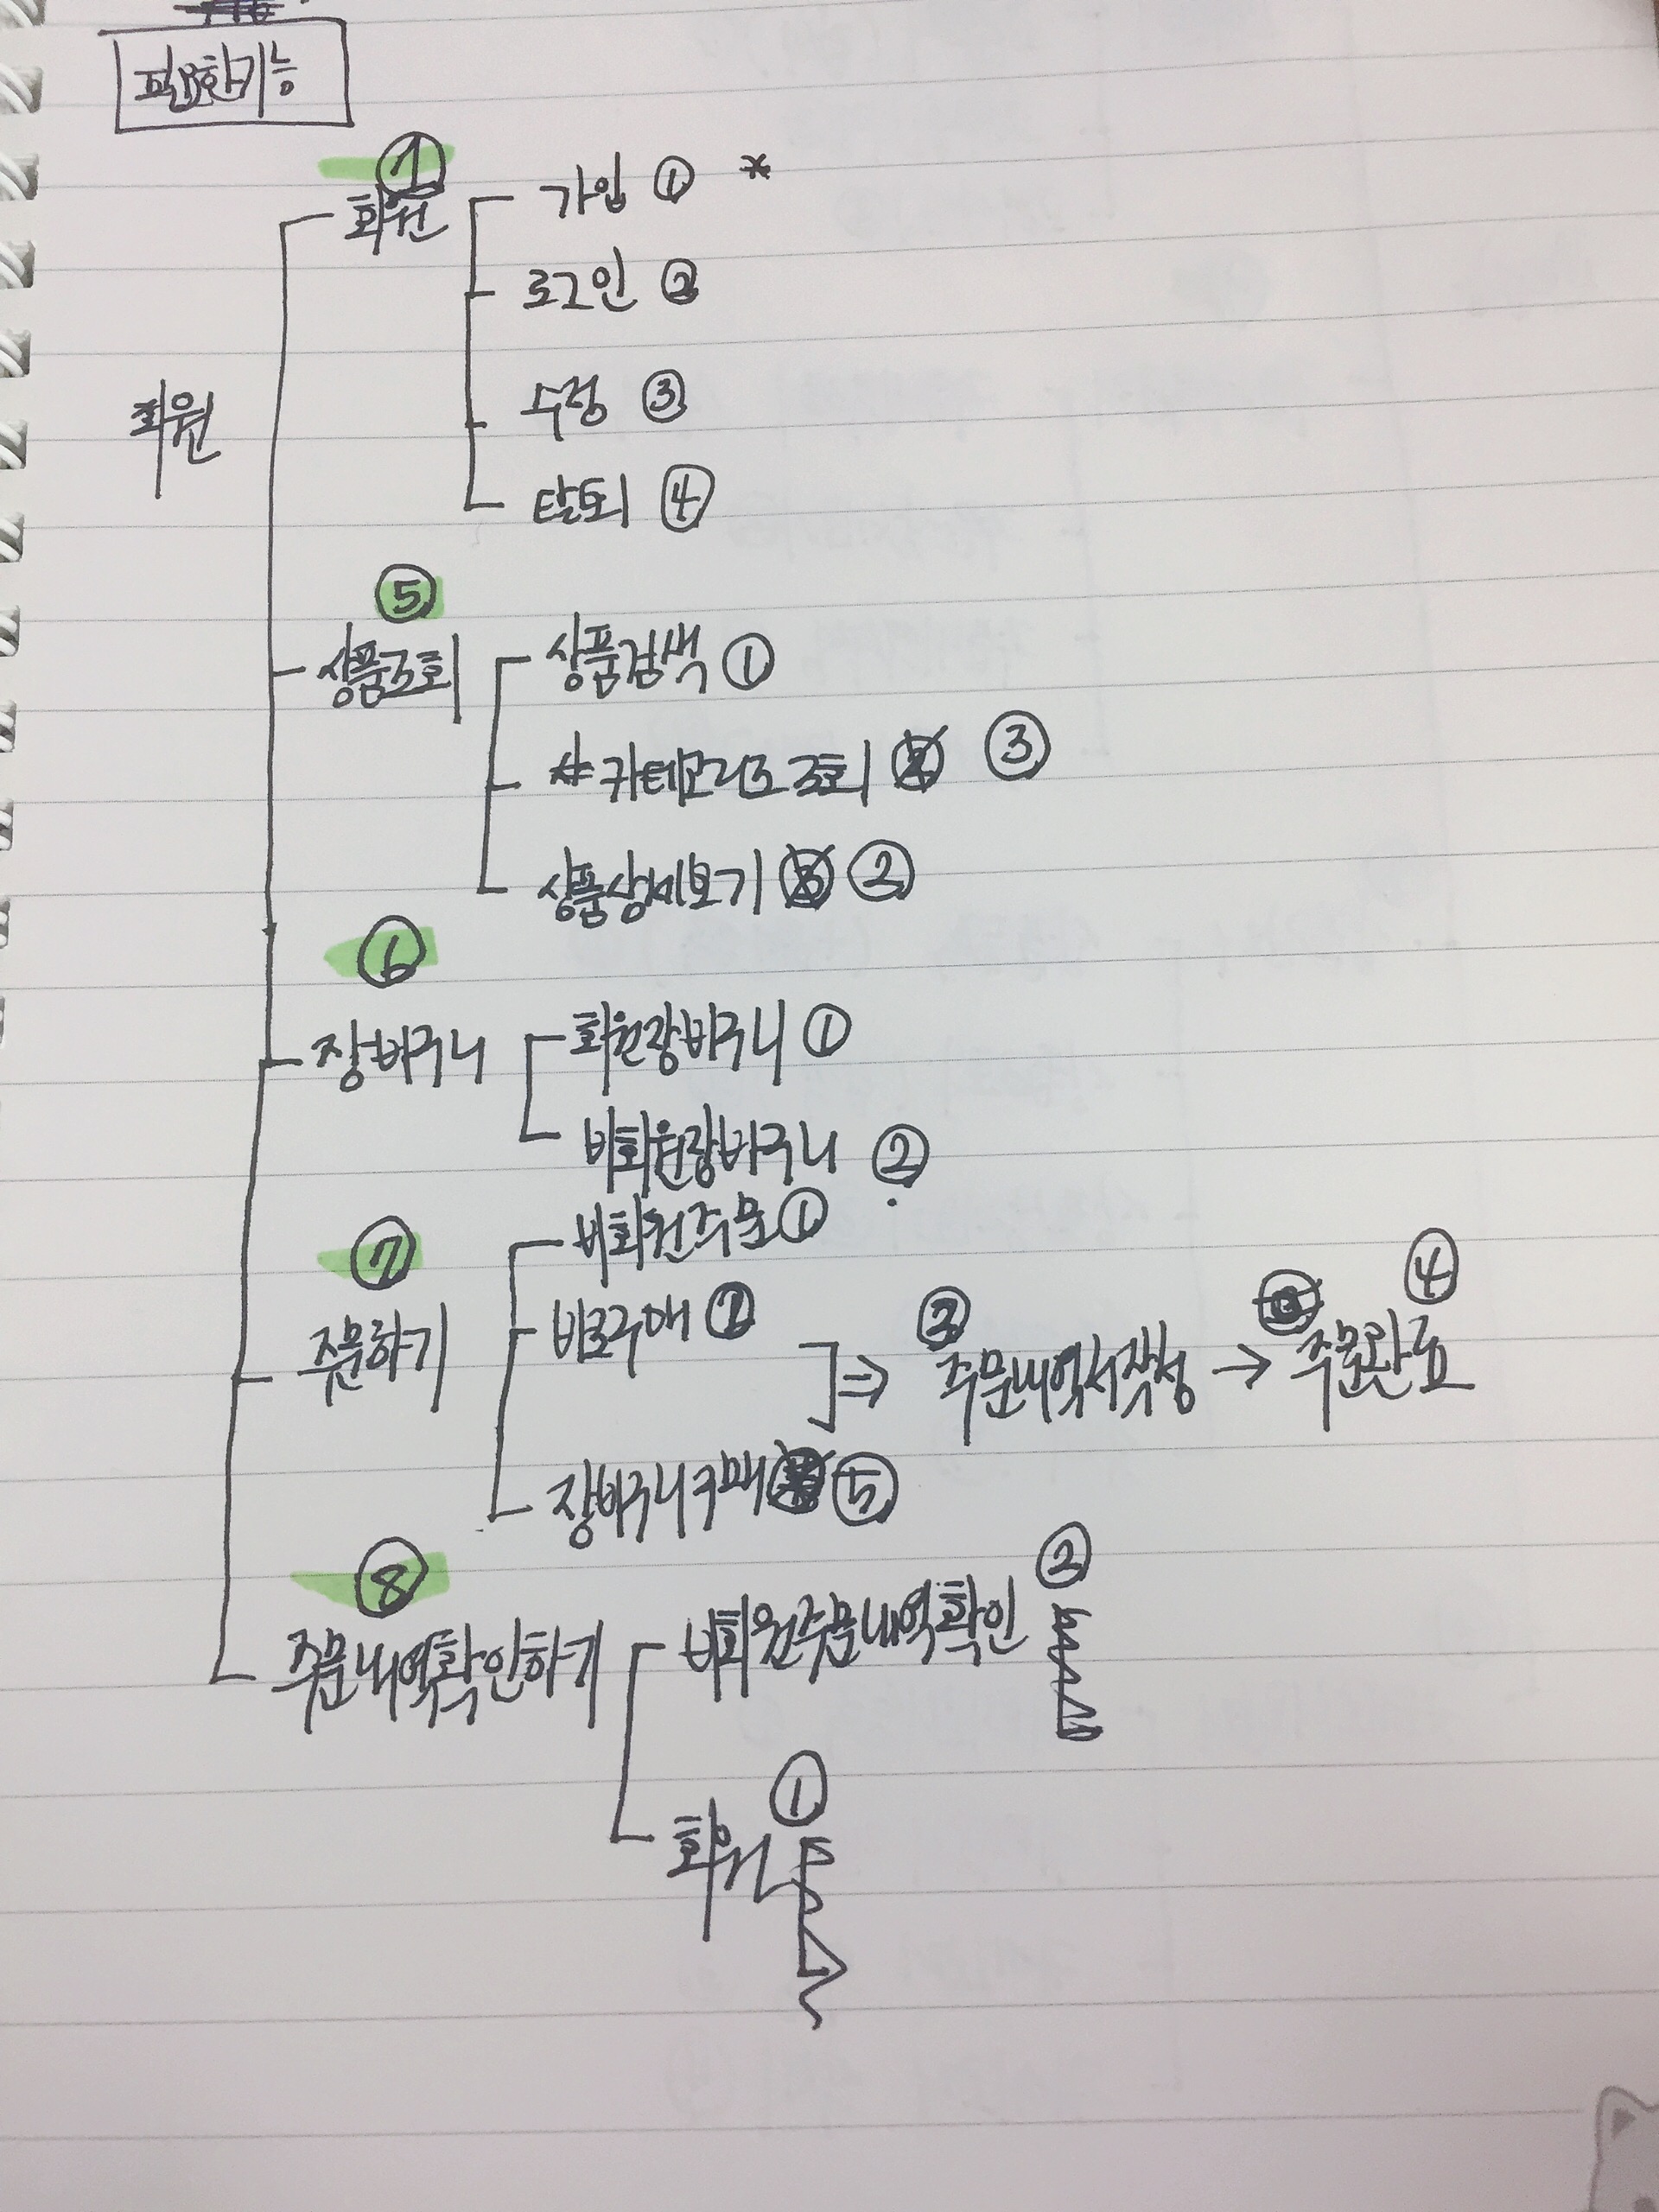 필요한기능
①
회원
가입 ① *
로그인 ②
수정 ③
탈퇴 ④
회원
⑤
상품조회
상품검색 ①
*카테고리로 조회 ③
상품상세보기 ②
⑥
장바구니
회원장바구니 ①
비회원장바구니 ②
⑦
주문하기
비회원주문 ①
바로구매 ②
⇒ ③ 주문내역서작성 → ④ 주문완료
장바구니구매 ⑤
⑧
주문내역확인하기
비회원주문내역확인 ②
회원 ①